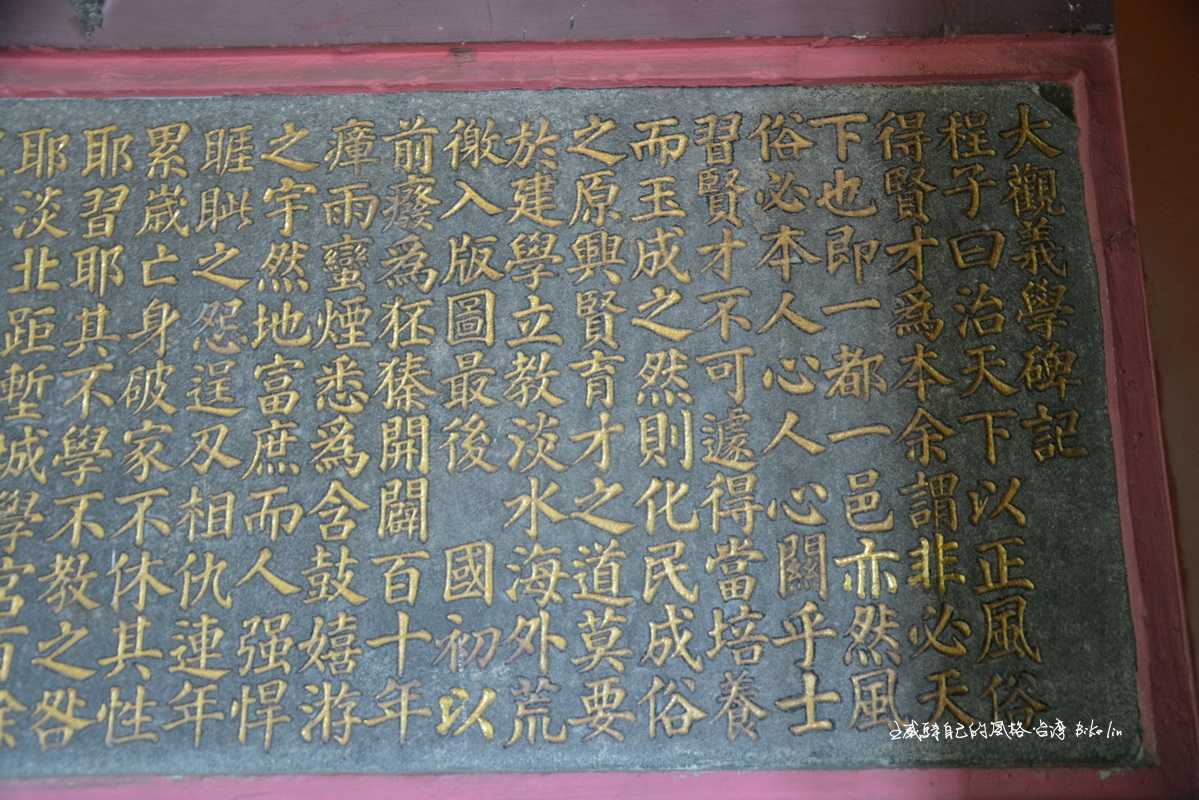 大觀義學碑記
程子曰治天下以正風俗
得賢才爲本余謂非必天
下也即一都一邑亦然風
俗必本人心人心關乎士
習賢才不可遽得當培養
而玉成之然則化民成俗
之原興賢育才之道莫要
於建學立教淡水海外荒
徼入版圖最後 國初以
前癈爲狉獉開闢百十年
瘴雨蠻煙悉爲含鼓嬉游
之宇然地富庶而人强悍
睚眦之怨逞刄相仇連年
累嵗亡身破家不休其性
耶習耶其不學不教之咎
耶淡北距塹城學宮百餘
自己的風格.台灣 Biko lin